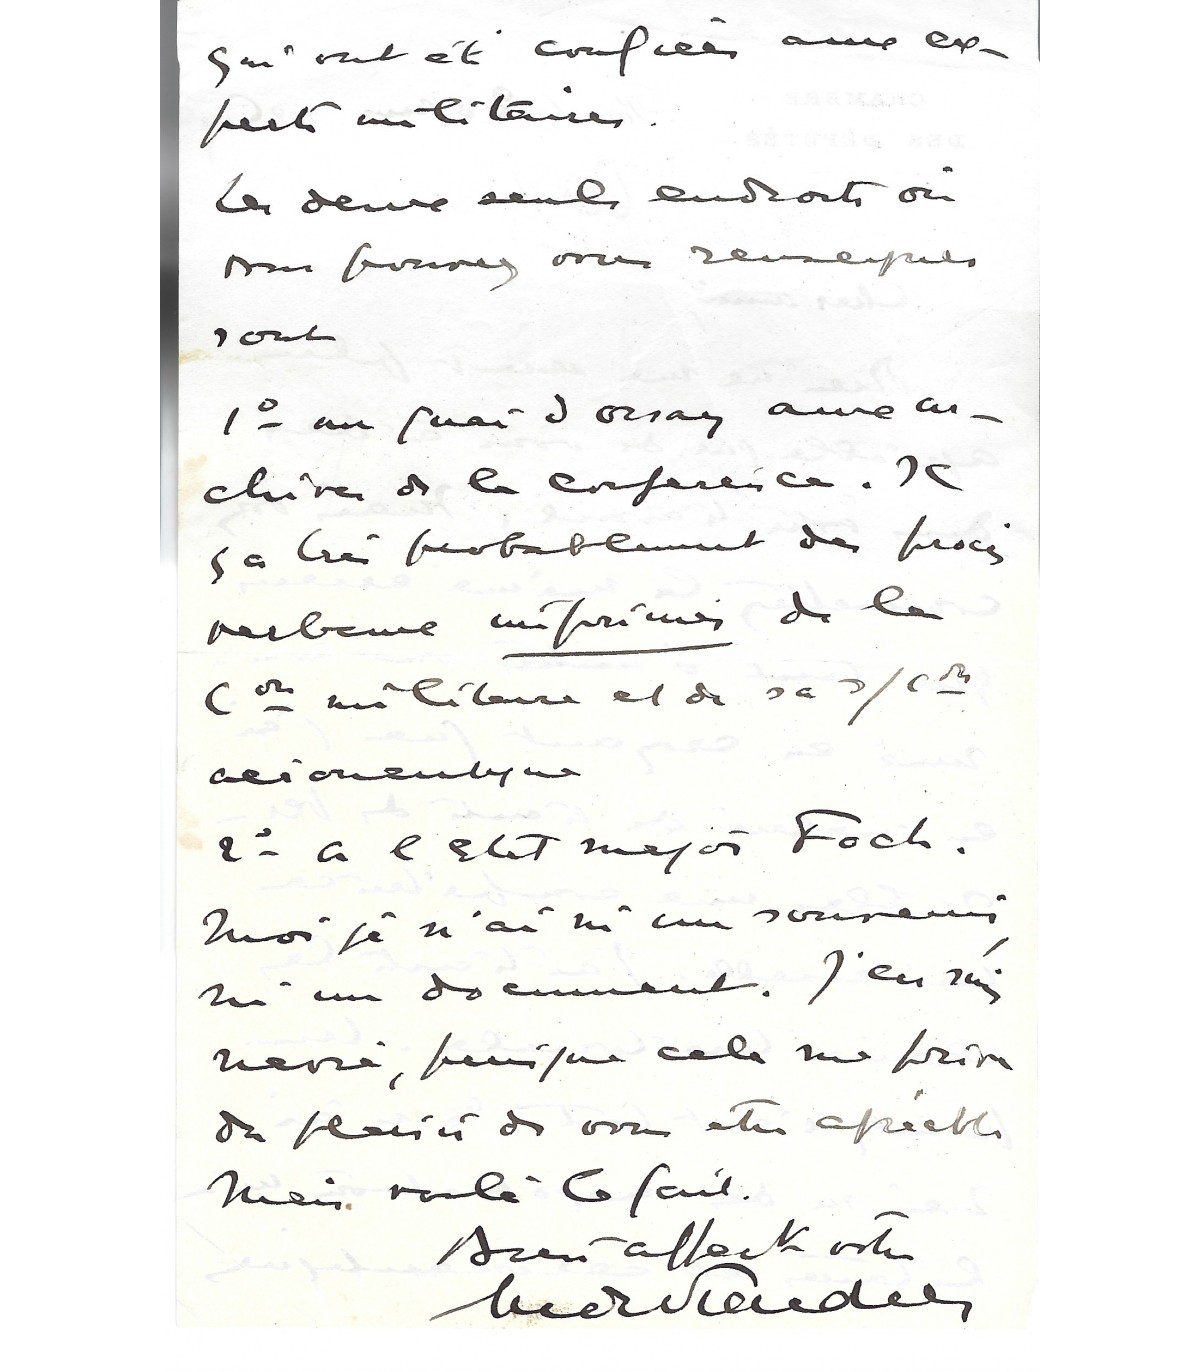 qui ont été confiées aux ex-
perts militaires.
Les deux seuls endroits où
vous pouvez vous renseigner
sont
1º au quai d'orsay aux ar-
chives de la conférence. Il
y a très probablement des procès
verbaux imprimés de la
Con militaire et de sa s/Con
aéronautique
2º a l'Etat major Foch.
Moi je n'ai ni un souvenir,
ni un document. J'en suis
navré, puisque cela me prive
du plaisir de vous être agréable
Mais voilà le fait.
Bien affectt votre
André Tardieu
CHAMBRE
DES DÉPUTÉS
Cher ami